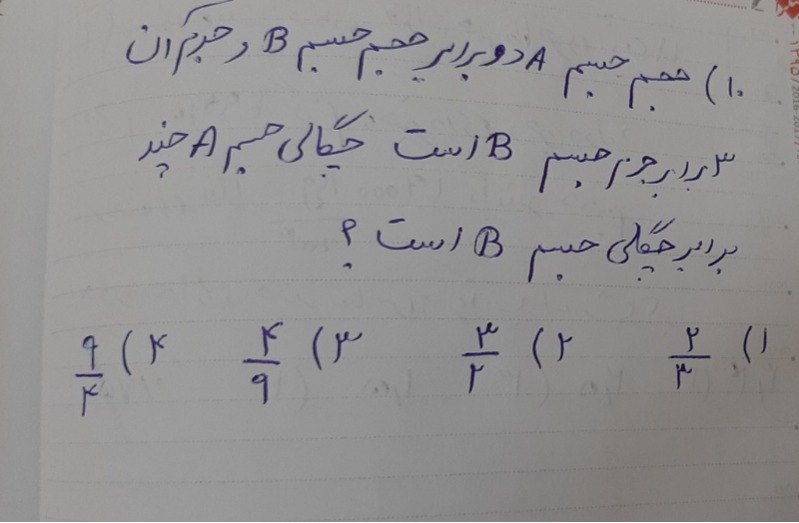 ۱۰) حجم جسم A دو برابر حجم جسم B و جرم آن
۳ برابر جرم جسم B است چگالی جسم A چند
برابر چگالی جسم B است ؟
۱) ۲/۳ ۲) ۳/۲ ۳) ۴/۹ ۴) ۹/۴